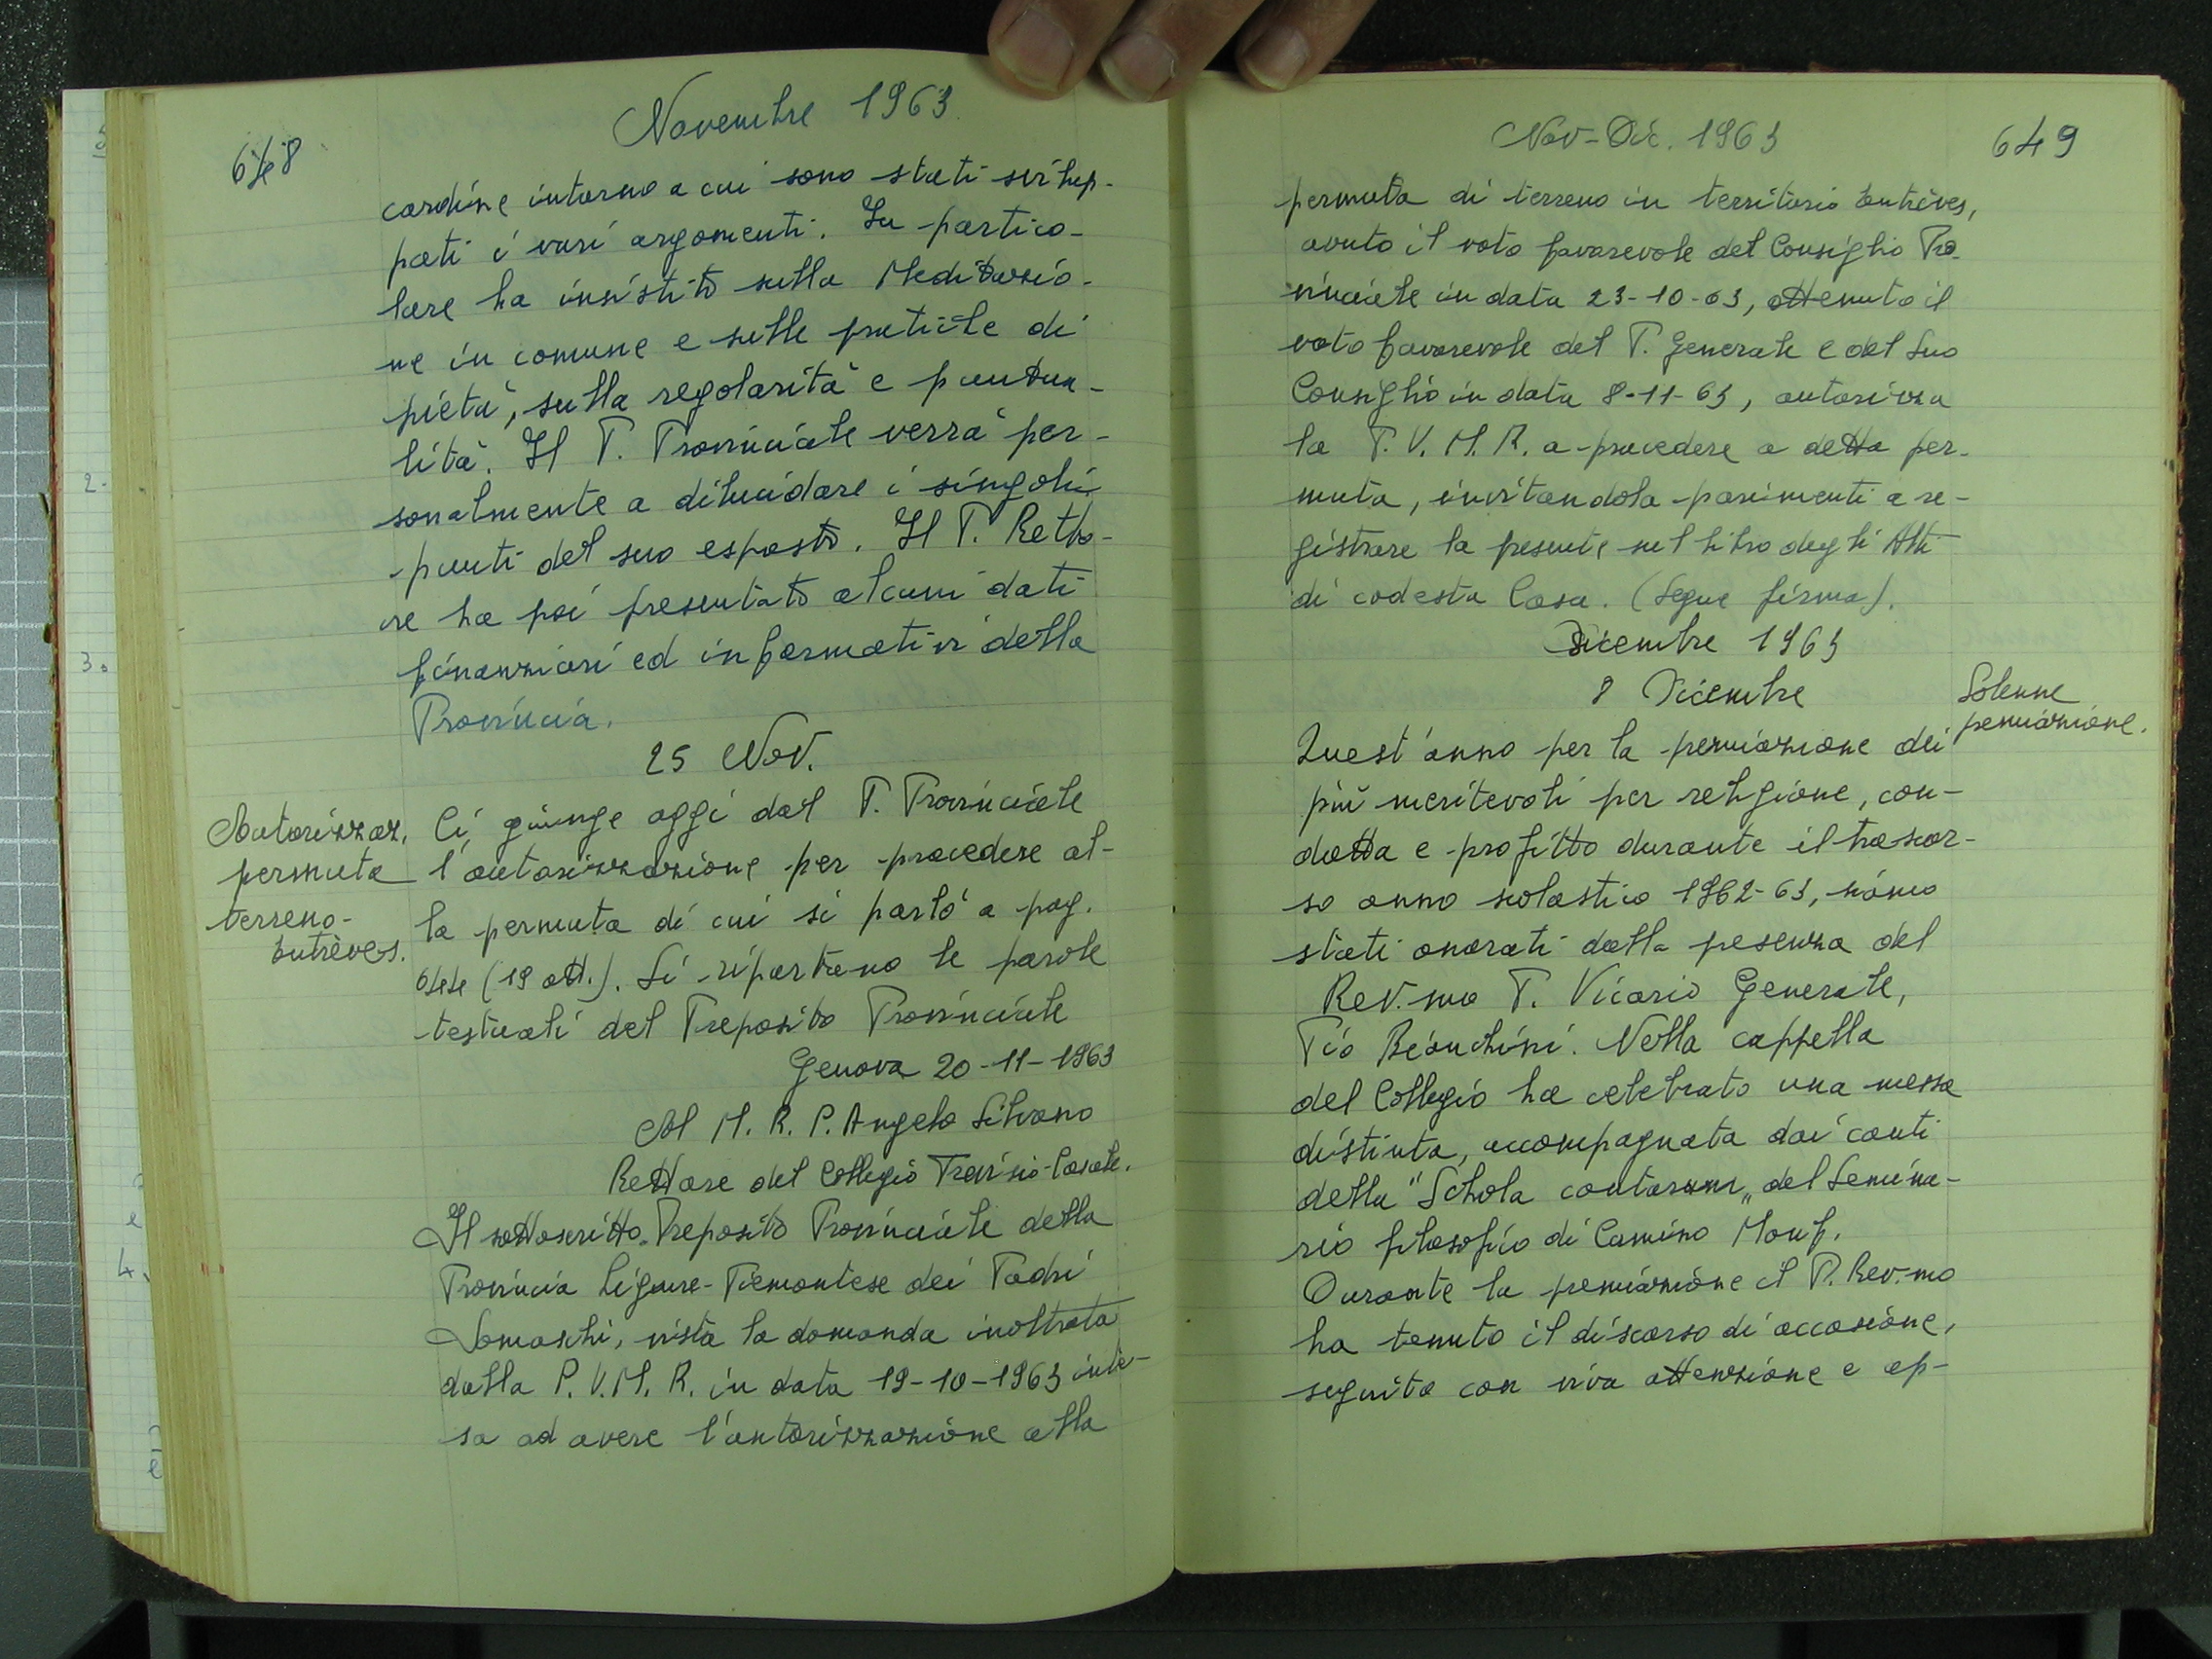 648
Novembre 1963.
cardine intorno a cui sono stati svilup-
pati i vari argomenti. In partico-
lare ha insistito sulla Meditazio-
ne in comune e sulle pratiche di
pietà, sulla regolarità e puntua-
lità. Il P. Provinciale verrà per-
sonalmente a dilucidare i singoli
punti del suo esposto. Il P. Retto-
re ha poi presentato alcuni dati
finanziari ed informativi della
Provincia.
25 Nov.
Autorizzaz.
permuta
terreno-
Entrèves.
Ci giunge oggi dal P. Provinciale
l'autorizzazione per procedere al-
la permuta di cui si parlò a pag.
644 (19 ott.). Si riportano le parole
testuali del Preposito Provinciale
Genova 20-11-1963
Al M. R. P. Angelo Silvano
Rettore del Collegio Trevisio-Casale.
Il sottoscritto Preposito Provinciale della
Provincia Ligure-Piemontese dei Padri
Somaschi, vista la domanda inoltrata
dalla P. V. M. R. in data 19-10-1963 inte-
sa ad avere l'autorizzazione alla
Nov-Dic. 1963
649
permuta di terreno in territorio Entrèves,
avuto il voto favorevole del Consiglio Pro-
vinciale in data 23-10-63, ottenuto il
voto favorevole del P. Generale e del Suo
Consiglio in data 8-11-63, autorizza
la P. V. M. R. a procedere a detta per-
muta, invitandola parimenti a re-
gistrare la presente sul libro degli Atti
di codesta Casa. (Segue firma).
Dicembre 1963
8 Dicembre
Solenne
premiazione.
Quest'anno per la premiazione dei
più meritevoli per religione, con-
dotta e profitto durante il trascor-
so anno scolastico 1962-63, siamo
stati onorati dalla presenza del
Rev.mo P. Vicario Generale,
Pio Bianchini. Nella cappella
del Collegio ha celebrato una messa
distinta, accompagnata dai canti
della "Schola cantorum" del Semina-
rio filosofico di Camino Monf.
Durante la premiazione il P. Rev.mo
ha tenuto il discorso di occasione,
seguito con viva attenzione e ap-